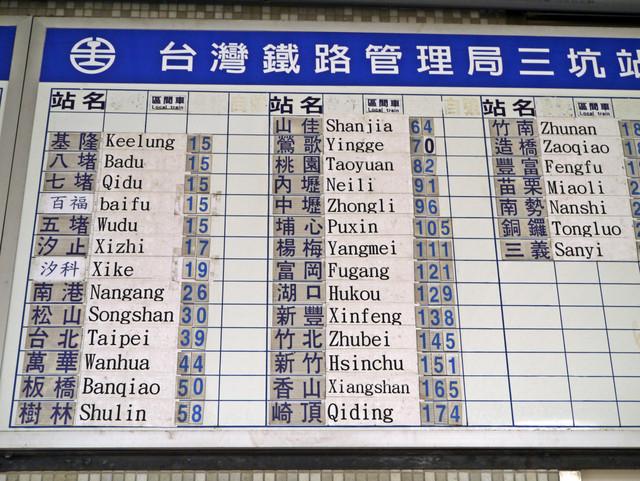 台灣鐵路管理局三坑站
站名 區間車 Local train
基隆 Keelung 15
八堵 Badu 15
七堵 Qidu 15
百福 baifu 15
五堵 Wudu 15
汐止 Xizhi 17
汐科 Xike 19
南港 Nangang 26
松山 Songshan 30
台北 Taipei 39
萬華 Wanhua 44
板橋 Banqiao 50
樹林 Shulin 58
站名 區間車 Local train
山佳 Shanjia 64
鶯歌 Yingge 70
桃園 Taoyuan 82
內壢 Neili 91
中壢 Zhongli 96
埔心 Puxin 105
楊梅 Yangmei 111
富岡 Fugang 121
湖口 Hukou 129
新豐 Xinfeng 138
竹北 Zhubei 145
新竹 Hsinchu 151
香山 Xiangshan 165
崎頂 Qiding 174
站名 區間車 Local train
竹南 Zhunan
造橋 Zaoqiao
豐富 Fengfu
苗栗 Miaoli
南勢 Nanshi
銅鑼 Tongluo
三義 Sanyi